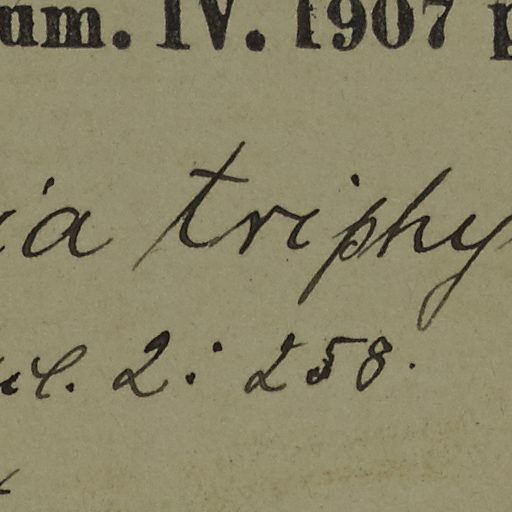 um. IV. 1907 p
ia triphy
il. 2: 258.